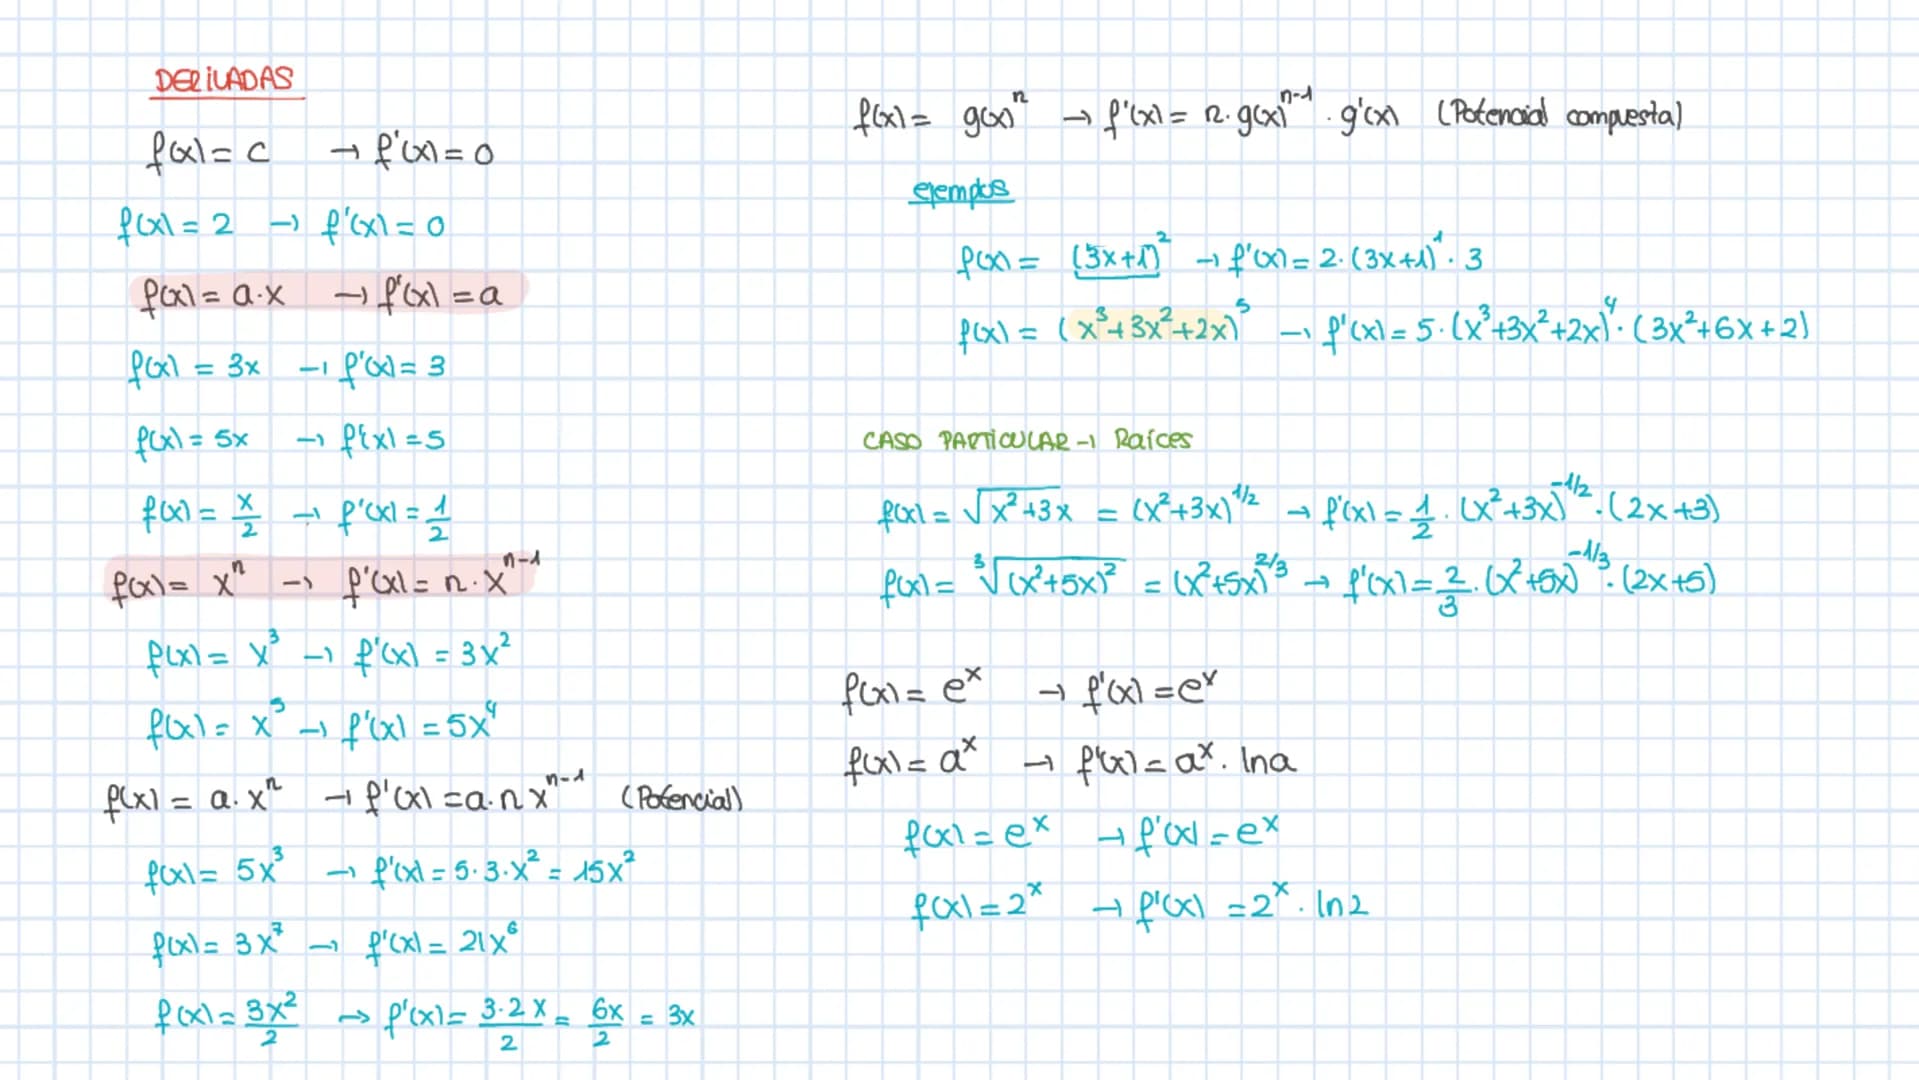 DERIVADAS
f(x) = c → f'(x) = 0
f(x) = 2 → f'(x) = 0
f(x) = a·x → f'(x) = a
f(x) = 3x → f'(x) = 3
f(x) = 5x → f'(x) = 5
f(x) = x/2 → f'(x) = 1/2
f(x) = xⁿ → f'(x) = n·xⁿ⁻¹
f(x) = x³ → f'(x) = 3x²
f(x) = x⁵ → f'(x) = 5x⁴
f(x) = a·xⁿ → f'(x) = a·n xⁿ⁻¹ (Potencial)
f(x) = 5x³ → f'(x) = 5·3·x² = 15x²
f(x) = 3x⁷ → f'(x) = 21x⁶
f(x) = 3x²/2 → f'(x) = 3·2x/2 = 6x/2 = 3x
f(x) = g(x)ⁿ → f'(x) = n·g(x)ⁿ⁻¹ · g'(x) (Potencial compuesta)
ejemplos
f(x) = (3x+1)² → f'(x) = 2·(3x+1)¹ · 3
f(x) = (x³+3x²+2x)⁵ → f'(x) = 5·(x³+3x²+2x)⁴·(3x²+6x+2)
CASO PARTICULAR → Raíces
f(x) = √(x²+3x) = (x²+3x)^1/2 → f'(x) = 1/2 · (x²+3x)^-1/2 · (2x+3)
f(x) = ³√(x²+5x)² = (x²+5x)^2/3 → f'(x) = 2/3 · (x²+5x)^-1/3 · (2x+5)
f(x) = eˣ → f'(x) = eˣ
f(x) = aˣ → f'(x) = aˣ · ln a
f(x) = eˣ → f'(x) = eˣ
f(x) = 2ˣ → f'(x) = 2ˣ · ln 2